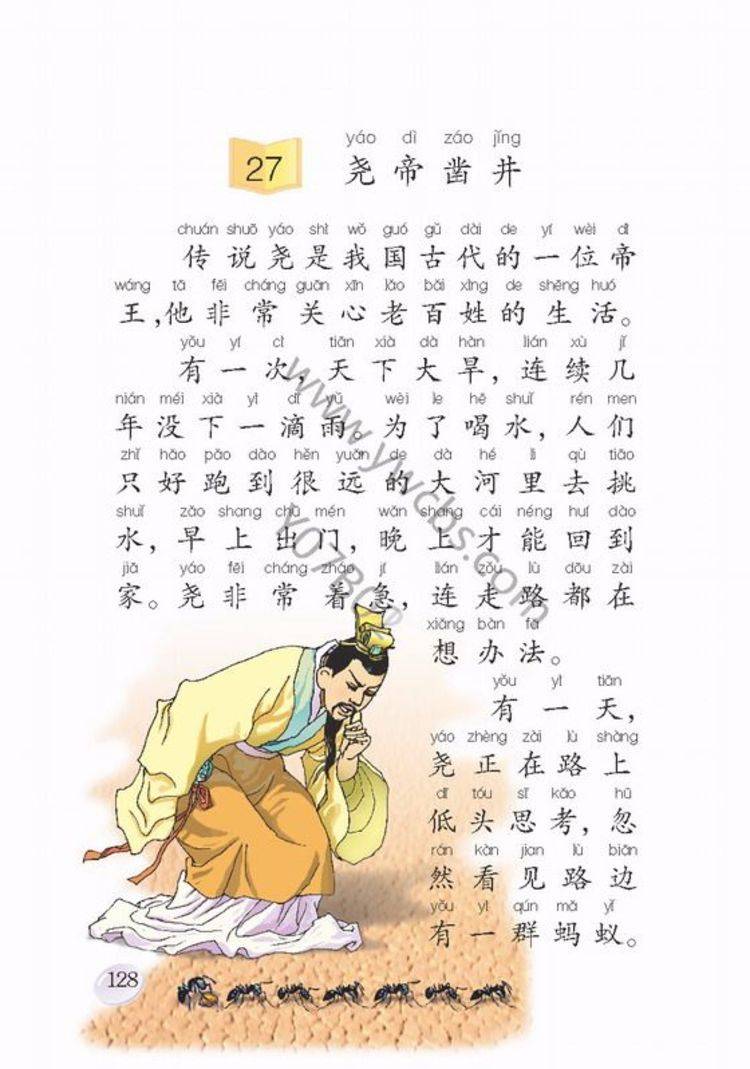 yáo dì záo jǐng
27 尧帝凿井
chuán shuō yáo shì wǒ guó gǔ dài de yí wèi dì
传说尧是我国古代的一位帝
wáng tā fēi cháng guān xīn lǎo bǎi xìng de shēng huó
王,他非常关心老百姓的生活。
yǒu yí cì tiān xià dà hàn lián xù jǐ
有一次,天下大旱,连续几
nián méi xià yì dī yǔ wèi le hē shuǐ rén men
年没下一滴雨。为了喝水,人们
zhǐ hǎo pǎo dào hěn yuǎn de dà hé li qù tiāo
只好跑到很远的大河里去挑
shuǐ zǎo shang chū mén wǎn shang cái néng huí dào
水,早上出门,晚上才能回到
jiā yáo fēi cháng zháo jí lián zǒu lù dōu zài
家。尧非常着急,连走路都在
xiǎng bàn fǎ
想办法。
yǒu yì tiān
有一天,
yáo zhèng zài lù shàng
尧正在路上
dī tóu sī kǎo hū
低头思考,忽
rán kàn jian lù biān
然看见路边
yǒu yì qún mǎ yǐ
有一群蚂蚁。
128
www.ywcbs.com
Y07BC®